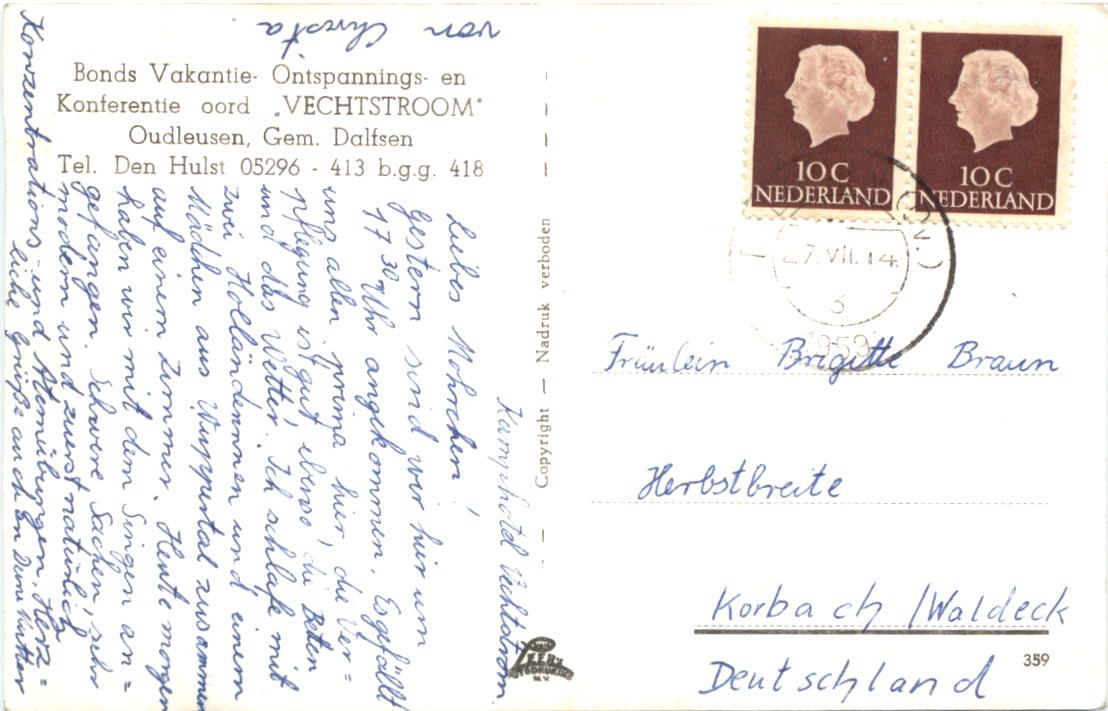 Bonds Vakantie- Ontspannings- en
Konferentie oord „VECHTSTROOM"
Oudleusen, Gem. Dalfsen
Tel. Den Hulst 05296 - 413 b.g.g. 418
Kamphotel Vechtstrom
Liebes Mohrchen!
Gestern sind wir hier um
17 30 Uhr angekommen. Es gefällt
uns allen prima hier, die Ver=
pflegung ist gut, ebenso die Beten
und das Wetter. Ich schlafe mit
zwei Holländerinnen und einem
Mädchen aus Wuppertal zusammen
auf einem Zimmer. Heute morgen
haben wir mit dem Singen an=
gefangen. Schwere Sachen, sehr
modern und zuerst natürlich
Konzentrations- und Atemübungen. Herz=
liche Grüße auch an Deine Mutter
von Christa
Copyright — Nadruk verboden
10 C
NEDERLAND
10 C
NEDERLAND
27.VII.14
1959
Fräulein Brigitte Braun
Herbstbreite
Korbach /Waldeck
Deutschland
359